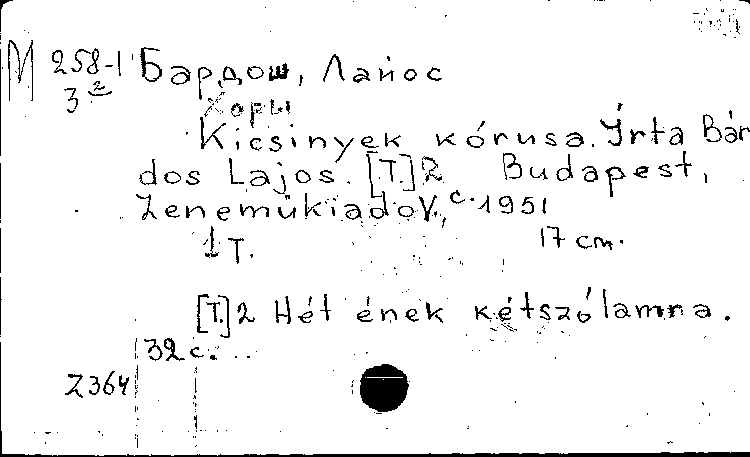 М 258-1 Бардош, Лайос
3 2
Хоры
Kicsinyek kórusa. Írta Bár
dos Lajos. [T.] 2 Budapest,
Zeneműkiadó V., c. 1951
1 т. 17 cm.
[T.] 2 Hét ének kétszólamra.
32 c.
Z364